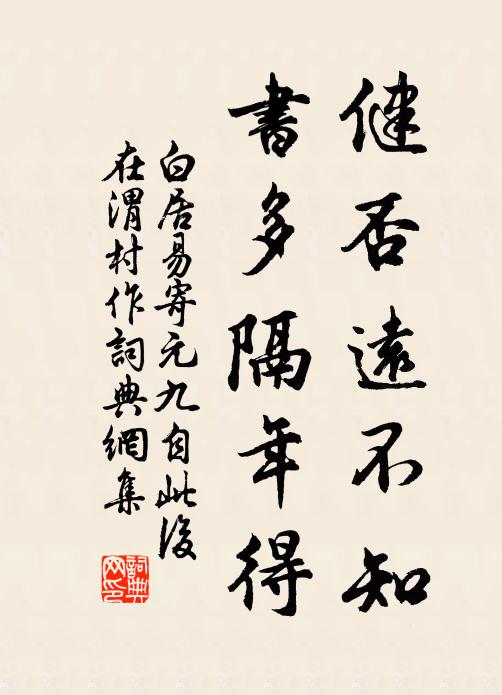 健否遠不知
書多隔年得
白居易寄元九自此後
在渭村作詞典網集
詞典
网印